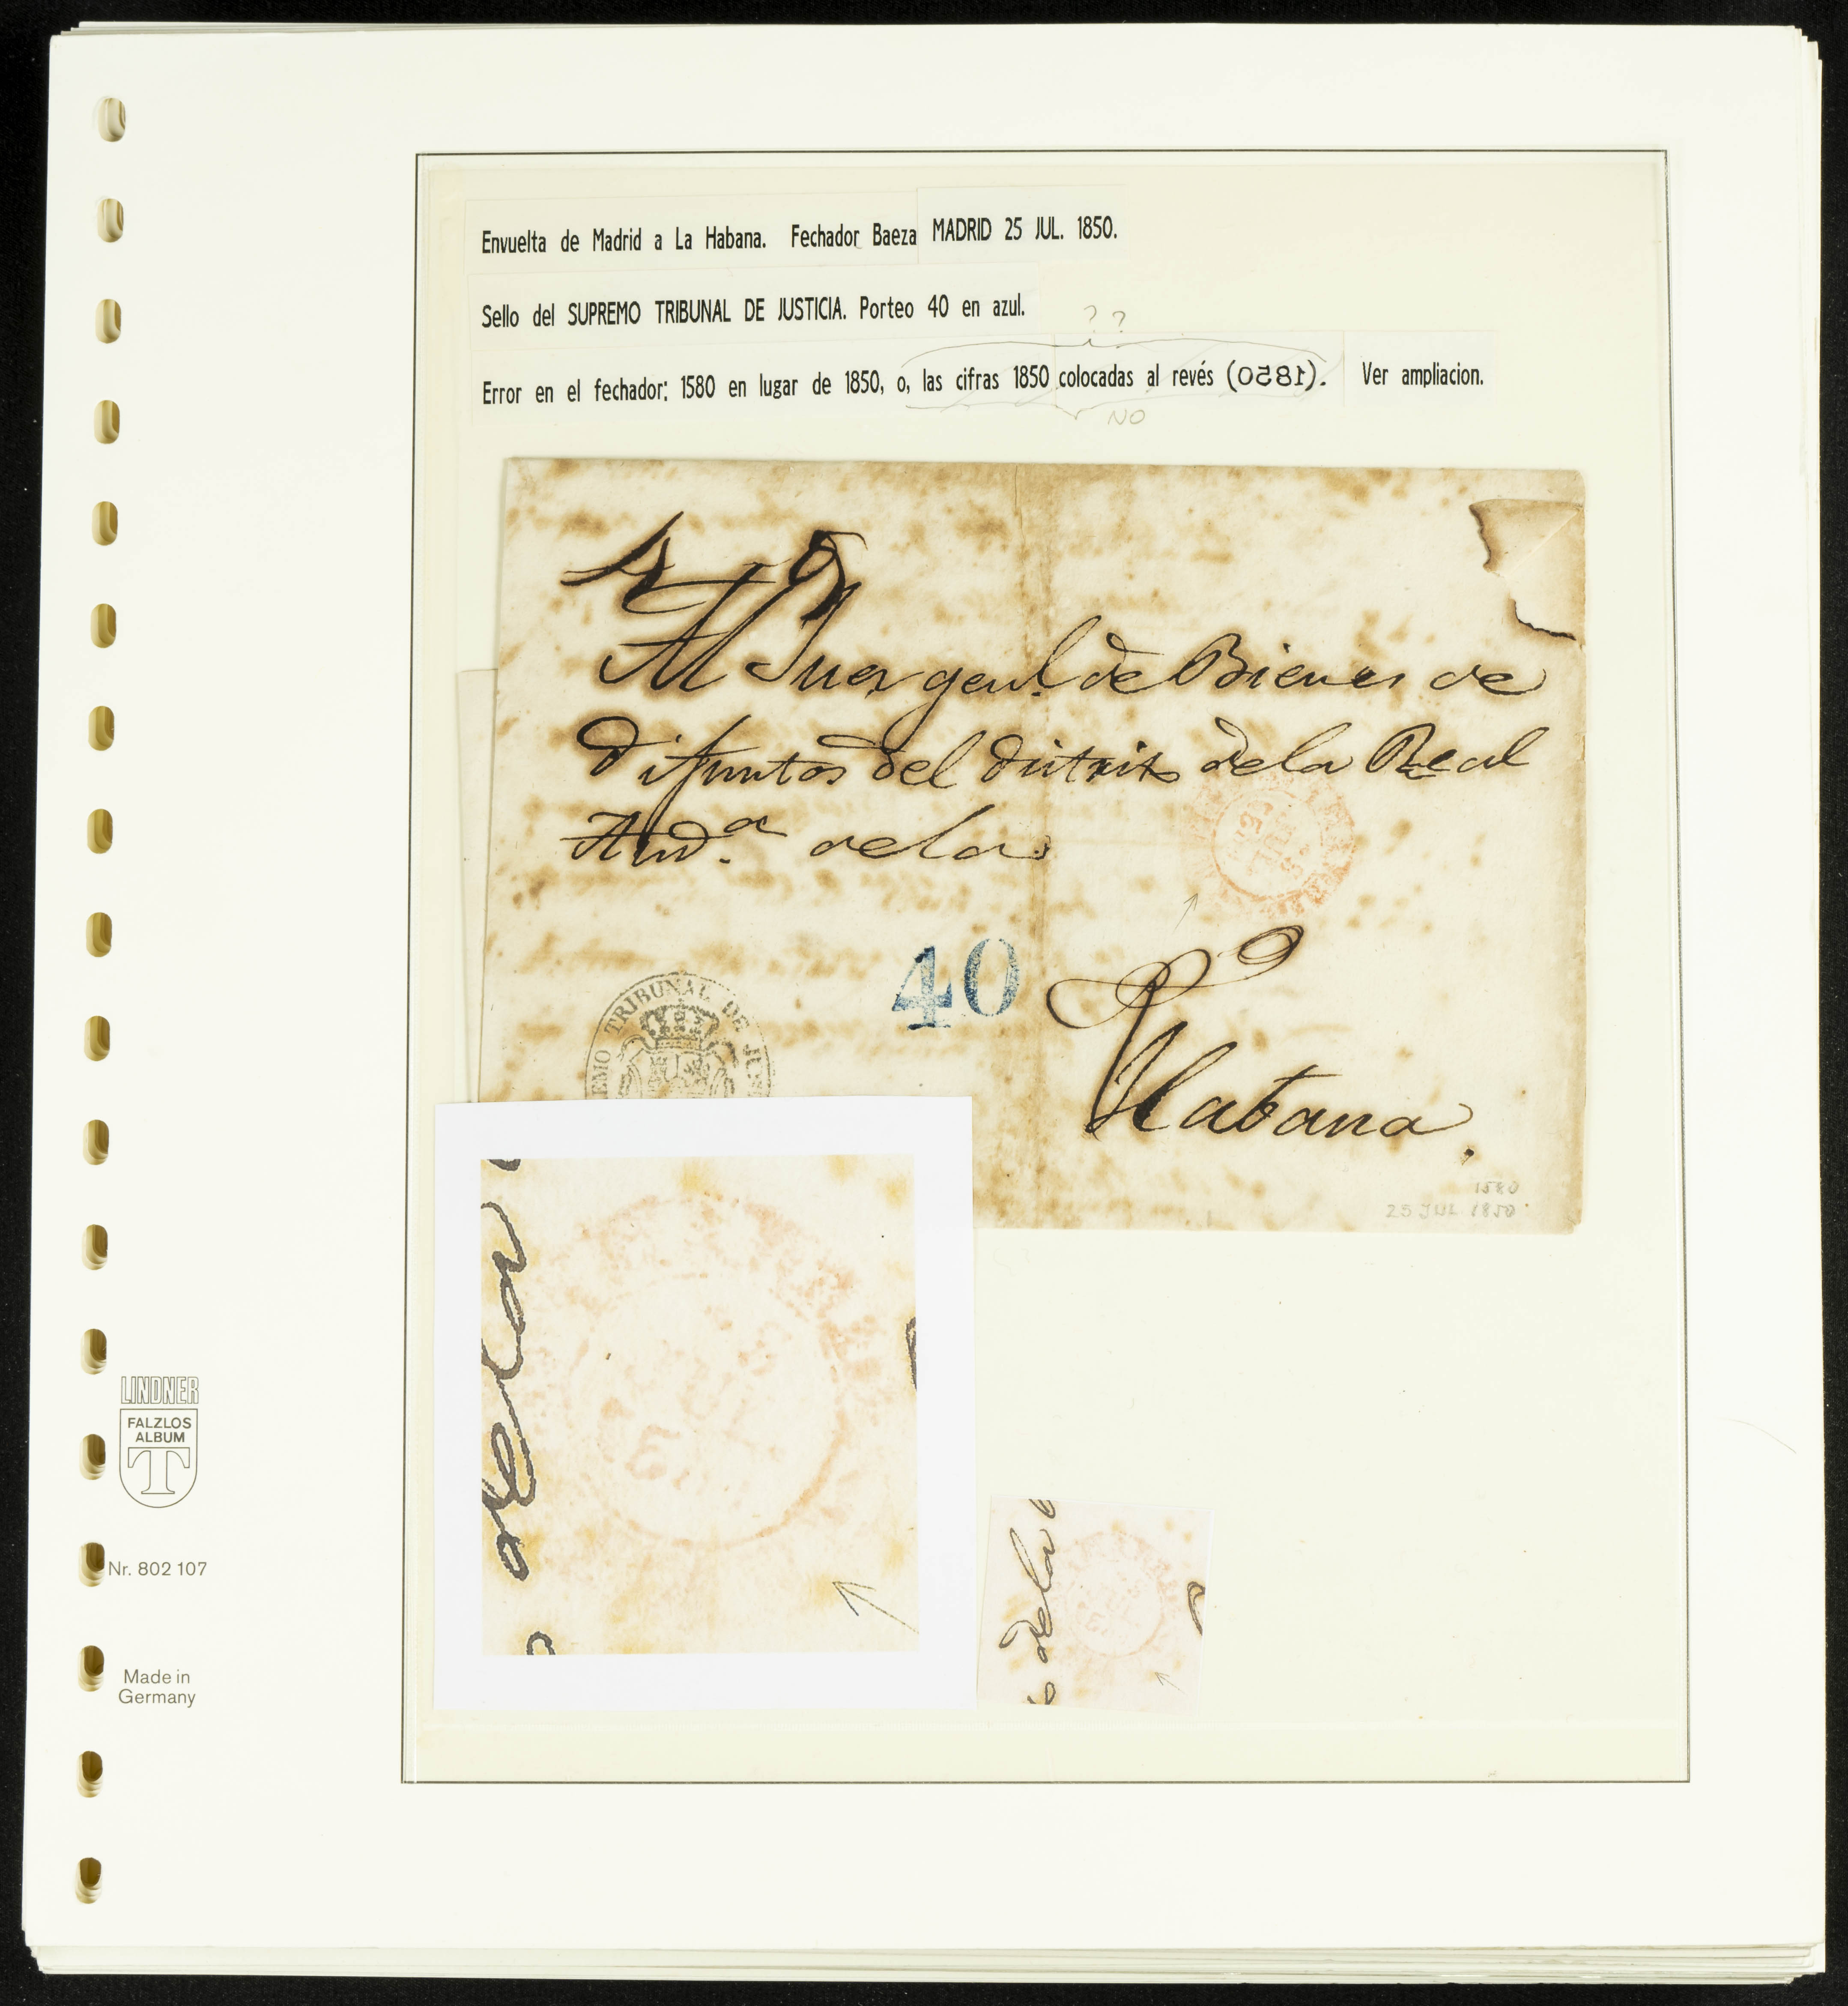 Envuelta de Madrid a La Habana. Fechador Baeza MADRID 25 JUL. 1850.
Sello del SUPREMO TRIBUNAL DE JUSTICIA. Porteo 40 en azul.
??
Error en el fechador: 1580 en lugar de 1850, o, las cifras 1850 colocadas al revés (1850). Ver ampliacion.
NO
Al Juez genl. de Bienes de
difuntos del distrito de la Real
Aud.a de la
40
EMO TRIBUNAL DE JUS
Habana.
1580
25 JUL 1850
de la
de la
LINDNER
FALZLOS
ALBUM
T
Nr. 802 107
Made in
Germany